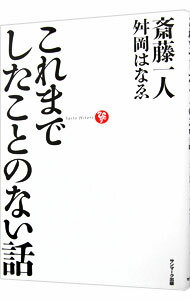 斎藤一人
舛岡はなゑ
これまで
したことのない話
Saito Hitori
サンマーク出版